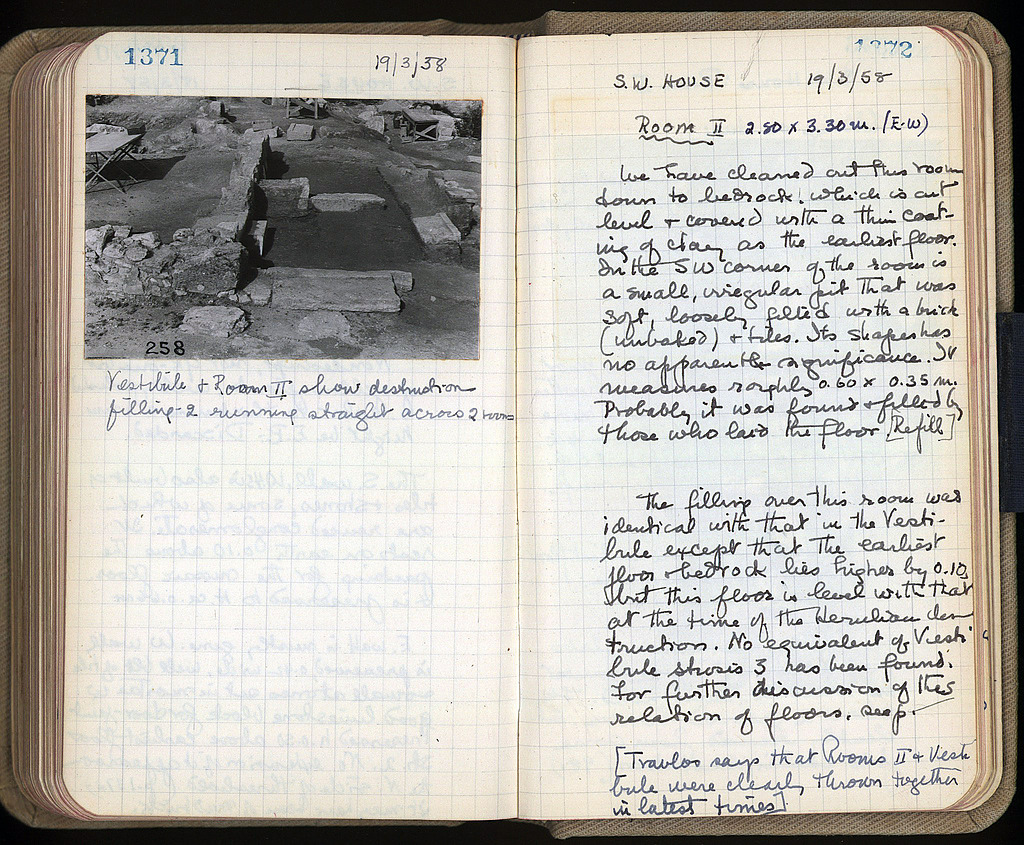 1371
19/3/58
258
Vestibule + Room II show destruction
filling-2 running straight across 2 rooms
1372
S.W. HOUSE 19/3/58
Room II 2.80 x 3.30 m. (E-W)
We have cleaned out this room
down to bedrock, which is cut
level + covered with a thin coat-
ing of clay as the earliest floor.
In the SW corner of the room is
a small, irregular pit that was
soft, loosely filled with a brick
(unbaked) + tiles. Its shape has
no apparent significance. It
measures roughly 0.60 x 0.35 m.
Probably it was found + filled by
those who laid the floor [Refill]
The filling over this room was
identical with that in the Vesti-
bule except that the earliest
floor + bedrock lies higher by 0.10,
but this floor is level with that
at the time of the Herulian des-
truction. No equivalent of Vesti-
bule strosis 3 has been found.
For further discussion of this
relation of floors, see p.
[Travlos says that Rooms II + Vesti-
bule were clearly thrown together
in latest times]